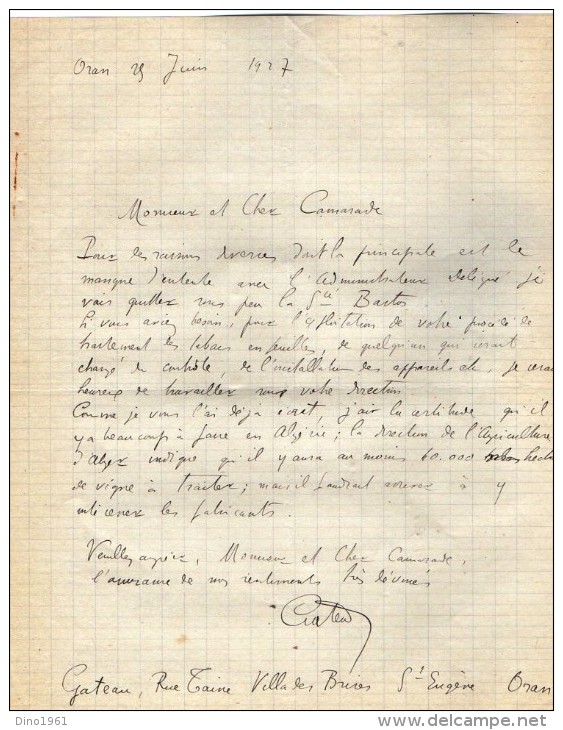 Oran 29 Juin 1927
Monsieur et Cher Camarade
Pour des raisons diverses dont la principale est le
manque d'entente avec l'administrateur délégué je
vais quitter sous peu la Sté Bastos.
Si vous aviez besoin, pour l'exploitation de votre procédé de
traitement des tabacs en feuilles, de quelqu'un qui serait
chargé du contrôle, de l'installation des appareils etc, je serais
heureux de travailler sous votre direction
Comme je vous l'ai déjà écrit, j'ai la certitude qu'il
y a beaucoup à faire en Algérie; la direction de l'Agriculture
d'Alger indique qu'il y aura au moins 60.000 hect
de vigne à traiter; mais il faudrait arriver à y
intéresser les fabricants.
Veuillez agréer, Monsieur et Cher Camarade,
l'assurance de mes sentiments très dévoués
Gateau
Gateau, Rue Taine Villa des Brises St Eugène Oran
Dino1961
delcampe.net